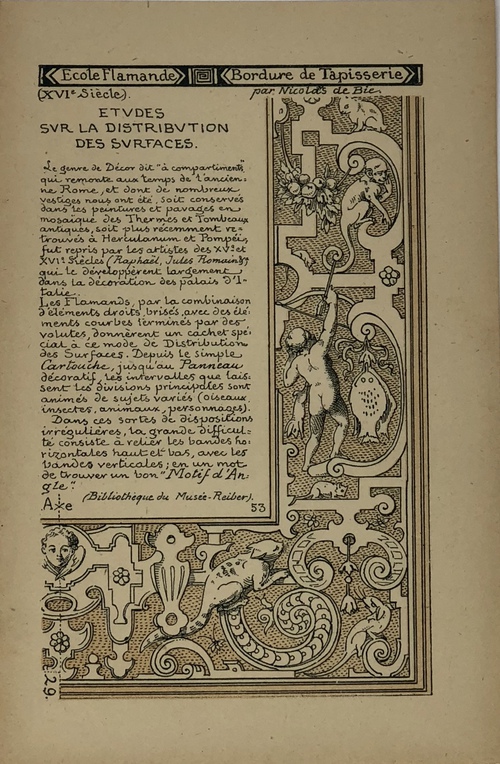 Ecole Flamande Bordure de Tapisserie
(XVIe Siècle). par Nicolas de Bie
ETVDES
SVR LA DISTRIBVTION
DES SVRFACES.
Le genre de Décor dit "à compartiments"
qui remonte aux temps de l'ancien-
ne Rome, et dont de nombreux
vestiges nous ont été, soit conservés
dans les peintures et pavages en
mosaïque des Thermes et Tombeaux
antiques, soit plus récemment re-
trouvés à Herculanum et Pompéi,
fut repris par les artistes des XVe et
XVIe Siècles (Raphaël, Jules Romain &)
qui le développèrent largement
dans la décoration des palais d'I-
talie.
Les Flamands, par la combinaison
d'éléments droits, brisés, avec des élé-
ments courbes terminés par des
volutes, donnèrent un cachet spé-
cial à ce mode de Distribution
des Surfaces. Depuis le simple
Cartouche, jusqu'au Panneau
décoratif, les intervalles que lais-
sent les divisions principales sont
animés de sujets variés (oiseaux,
insectes, animaux, personnages).
Dans ces sortes de dispositions
irrégulières, la grande difficul-
té consiste à relier les bandes ho-
rizontales haut et bas, avec les
bandes verticales; en un mot
de trouver un bon "Motif d'An-
gle".
(Bibliothèque du Musée-Reiber).
Axe 53
29.